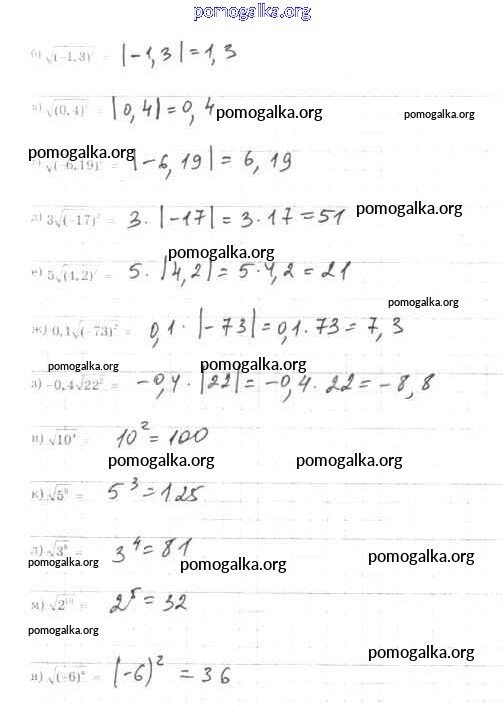 pomogalka.org
б) √(−1,3)² = |−1,3| = 1,3
в) √(0,4)² = |0,4| = 0,4 pomogalka.org pomogalka.org
pomogalka.org
√(−6,19)² = |−6,19| = 6,19
д) 3√(−17)² = 3·|−17| = 3·17 = 51 pomogalka.org
pomogalka.org
е) 5√(4,2)² = 5·|4,2| = 5·4,2 = 21
pomogalka.org
ж) 0,1√(−73)² = 0,1·|−73| = 0,1·73 = 7,3
pomogalka.org pomogalka.org
з) −0,4√22² = −0,4·|22| = −0,4·22 = −8,8
и) √10⁴ = 10² = 100
pomogalka.org pomogalka.org
к) √5⁶ = 5³ = 125
л) √3⁸ = 3⁴ = 81
pomogalka.org pomogalka.org pomogalka.org
м) √2¹⁰ = 2⁵ = 32
pomogalka.org
pomogalka.org
н) √(−6)⁴ = (−6)² = 36